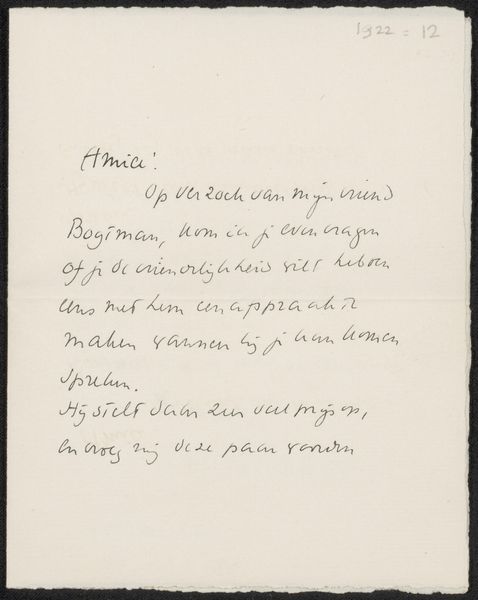 1922 = 12
Amice!
Op verzoek van mijn vriend
Bogtman, kom ik je even vragen
of je de vriendelijkheid wilt hebben
eens met hem een afspraak te
maken wanneer hij je kan komen
spreken.
Hij stelt daar zeer veel prijs op,
en vroeg mij deze paar woorden